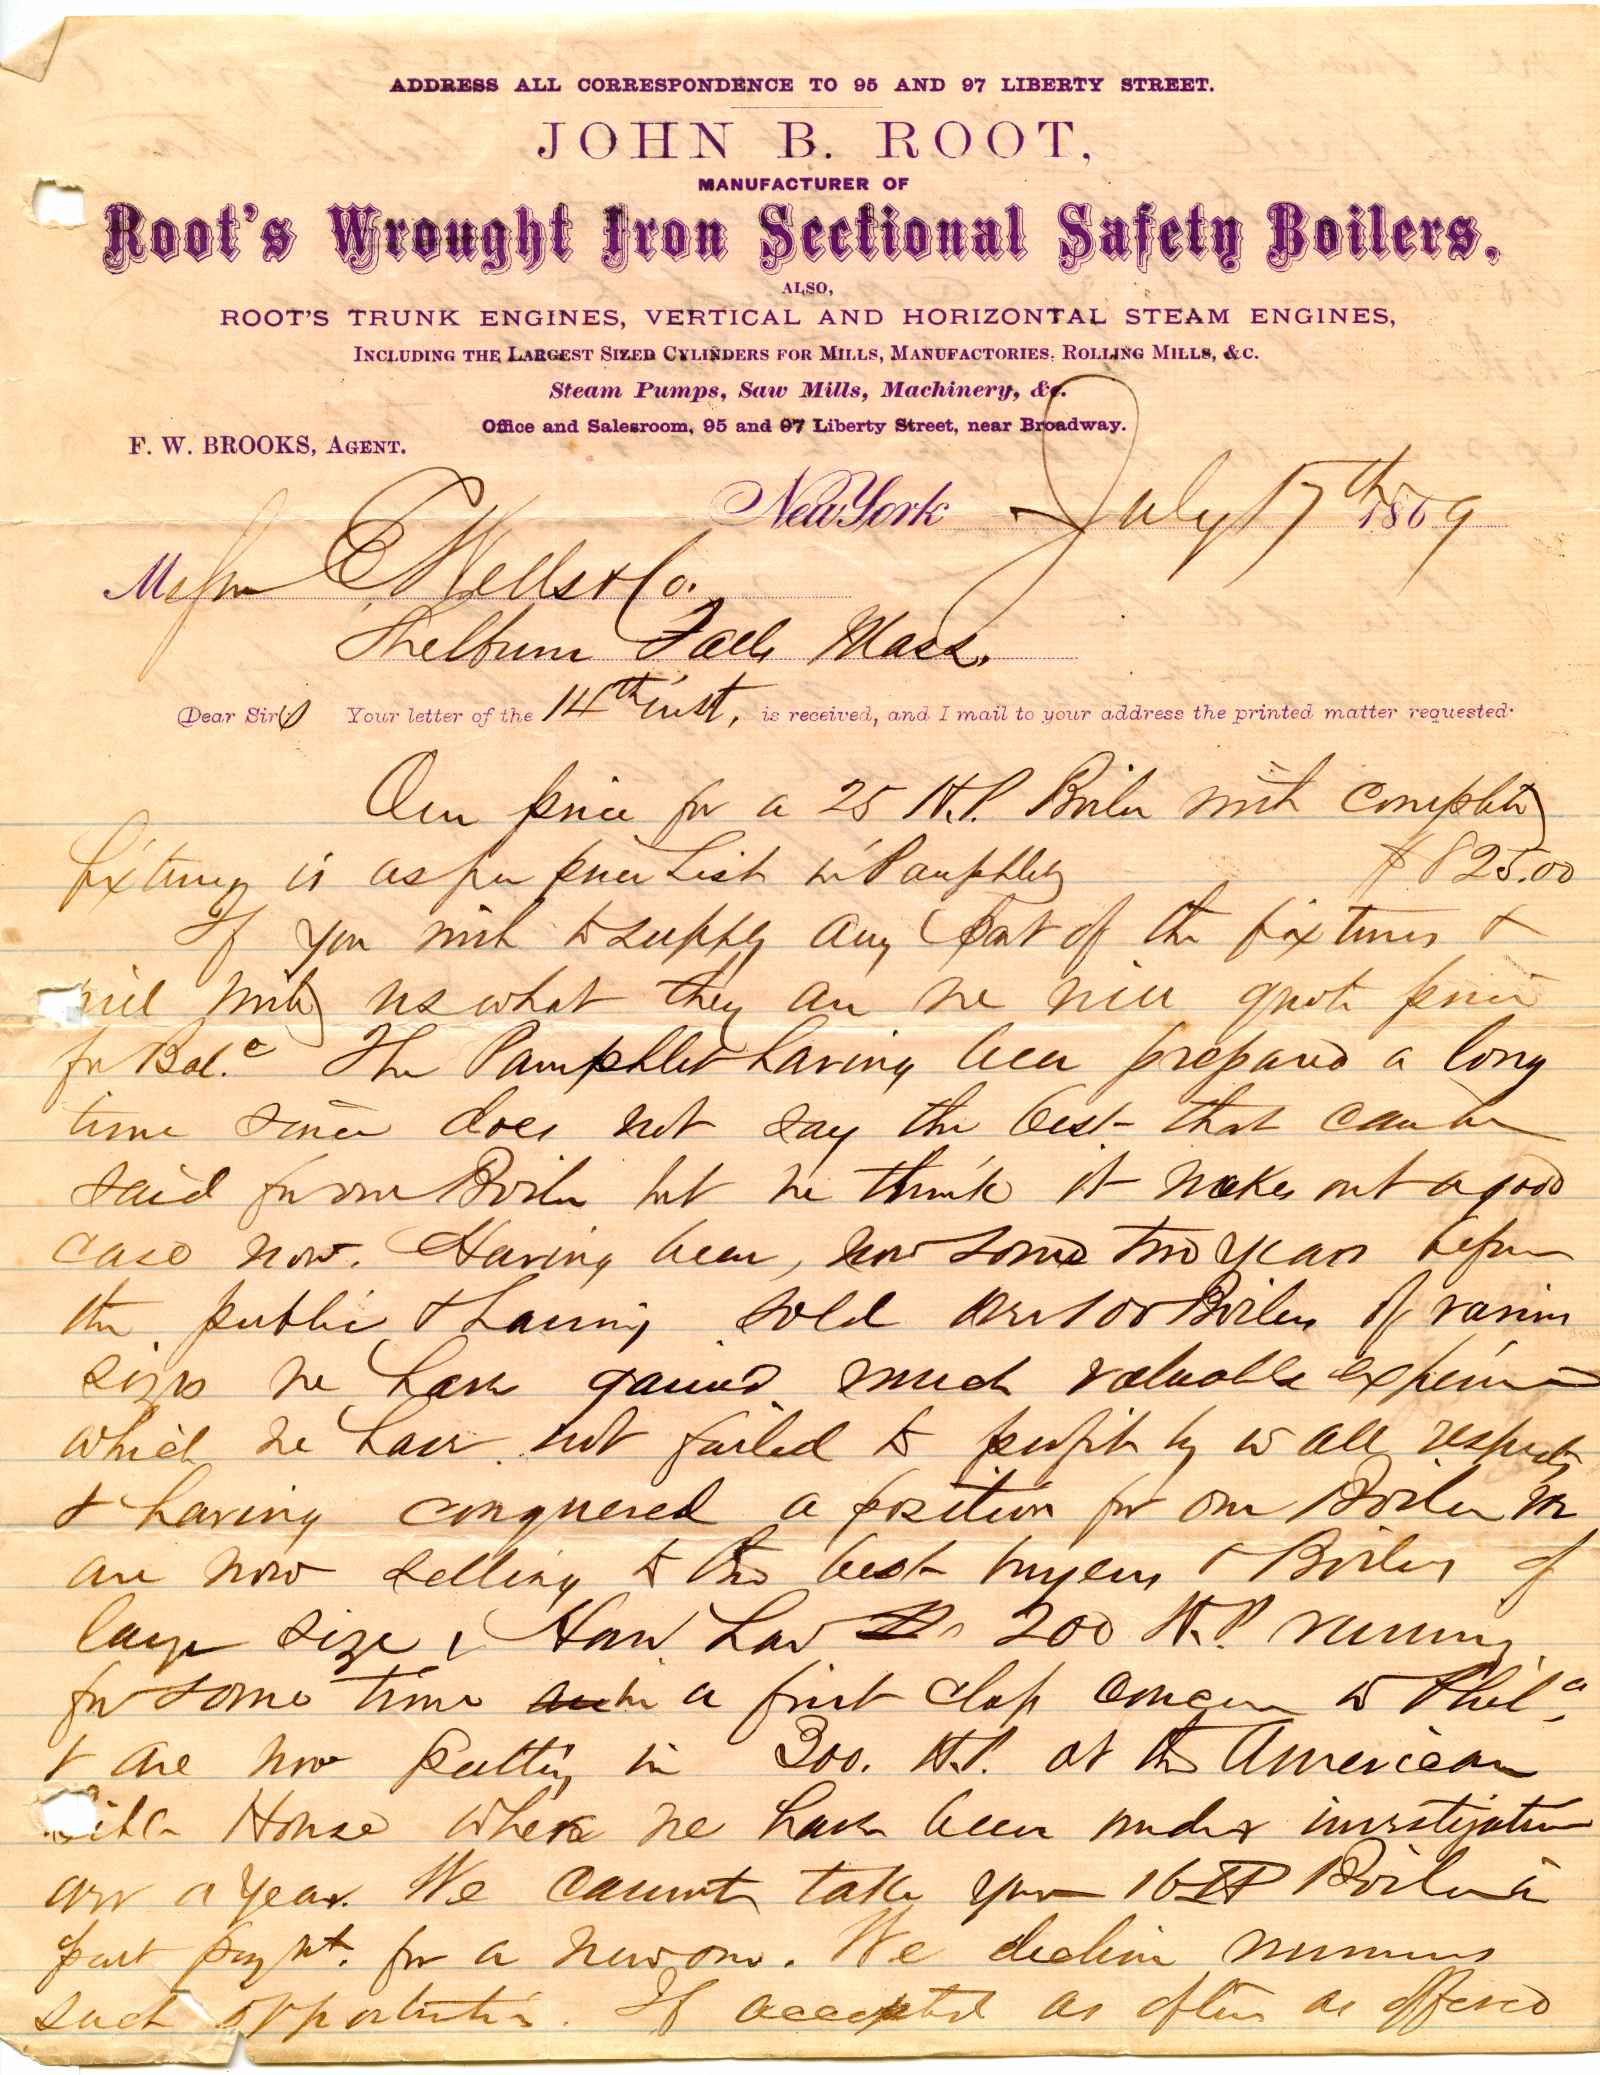 ADDRESS ALL CORRESPONDENCE TO 95 AND 97 LIBERTY STREET.
JOHN B. ROOT,
MANUFACTURER OF
Root's Wrought Iron Sectional Safety Boilers,
ALSO,
ROOT'S TRUNK ENGINES, VERTICAL AND HORIZONTAL STEAM ENGINES,
INCLUDING THE LARGEST SIZED CYLINDERS FOR MILLS, MANUFACTORIES, ROLLING MILLS, &C.
Steam Pumps, Saw Mills, Machinery, &c.
Office and Salesroom, 95 and 97 Liberty Street, near Broadway.
F. W. BROOKS, AGENT.
New York July 17th 1869
Messrs Wells & Co.
Shelburn Falls Mass.
Dear Sirs Your letter of the 14th inst, is received, and I mail to your address the printed matter requested.
Our price for a 25 H.P. Boiler with complete
fixtures is as per price List in Pamphlet $825.00
If you wish to supply any part of the fixtures &
will write us what they are we will quote price
for Bal.e The Pamphlet having been prepared a long
time since does not say the best that can be
said for our Boiler but we think it makes out a good
case now. Having been, now some two years before
the public & having sold over 100 Boilers of various
sizes we have gained much valuable experience
which we have not failed to profit by in all respects
& having conquered a position for our Boiler we
are now selling to the best buyers & Boilers of
large size, Have had 200 H.P. running
for some time in a first class concern in Phila,
& are now putting in 300. H.P. at the American
Bible House where we have been under investigation
over a year. We cannot take your 16 HP Boiler in
part paymt. for a new one. We decline numerous
such opportunities. If accepted as often as offered